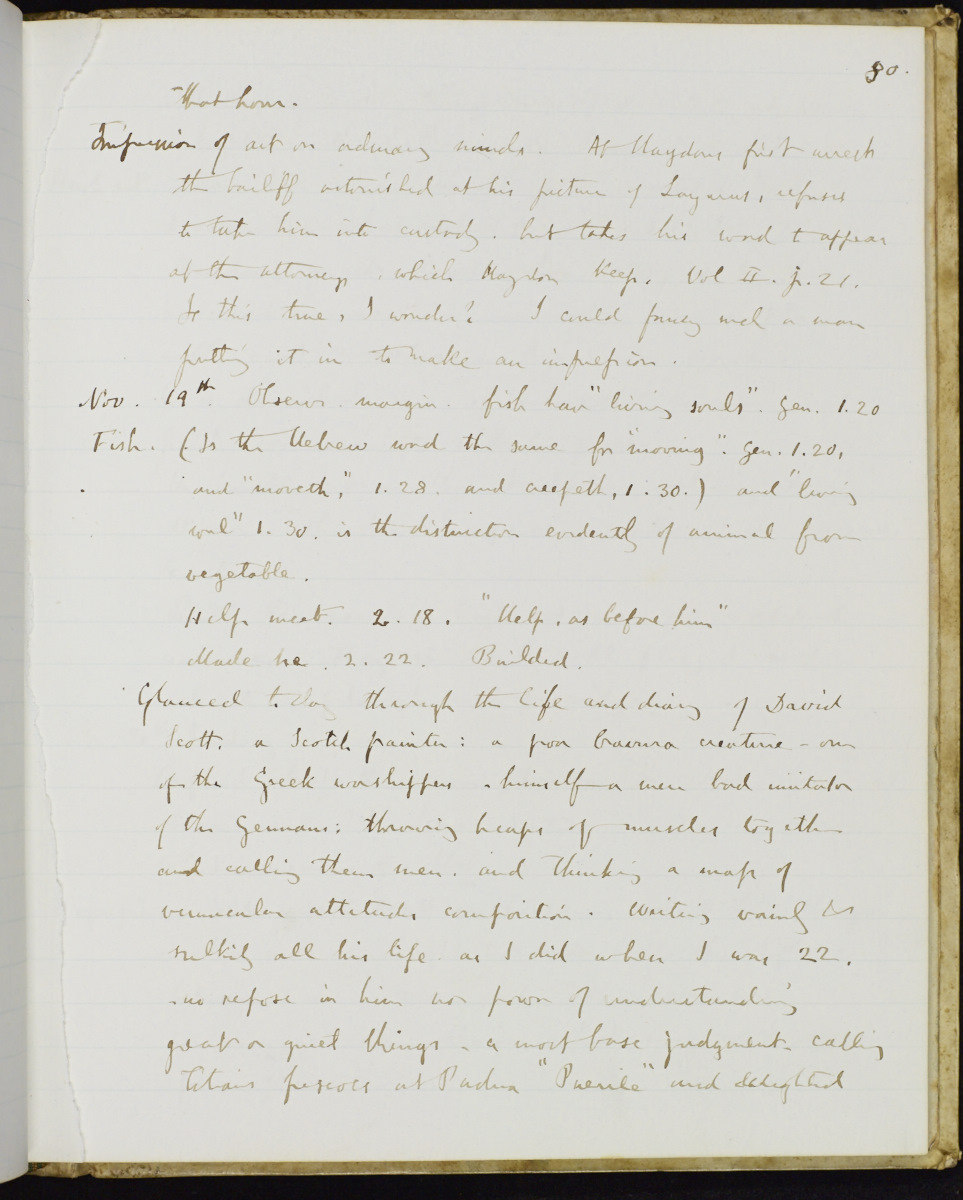 80.
that hour.
Impression of art on ordinary minds. At Haydons first arrest
the bailiff astonished at his picture of Lazarus, refuses
to take him into custody. but takes his word to appear
at the attorneys, which Haydon keeps. Vol II. p. 21.
Is this true, I wonder? I could fancy such a man
putting it in to make an impression.
Nov. 19th. Observe margin. fish have "living souls". Gen. 1.20
Fish. (Is the Hebrew word the same for "moving". Gen. 1.20,
and "moveth," 1.28. and creepeth, 1.30.) and "living
soul" 1.30. is the distinction evidently of animal from
vegetable.
Help meet. 2.18. "Help, as before him"
Made he. 2.22. Builded.
Glanced to day through the life and diary of David
Scott. a Scotch painter: a poor bravura creature - one
of the Greek worshippers - himself a mere bad imitator
of the Germans: throwing heaps of muscles together
and calling them men. and thinking a mass of
vermicular attitudes composition. Writing vainly &
sulkily all his life as I did when I was 22.
- no repose in him nor power of understanding
great or quiet things - a most base judgment - calling
Titians frescoes at Padua "Puerile" and delighted